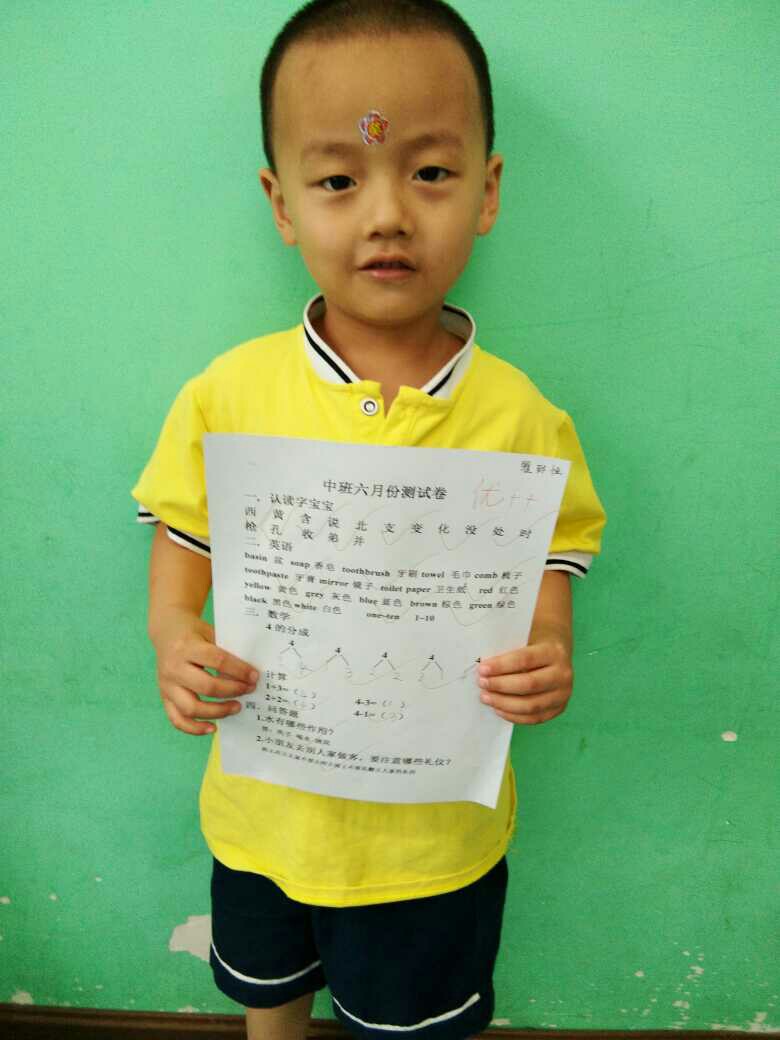 中班六月份测试卷
优++
一、认读字宝宝
西 黄 含 说 北 支 变 化 没 处 时
枪 孔 收 弟 并
二、英语
basin 盆 soap 香皂 toothbrush 牙刷 towel 毛巾 comb 梳子
toothpaste 牙膏 mirror 镜子 toilet paper 卫生纸 red 红色
yellow 黄色 grey 灰色 blue 蓝色 brown 棕色 green 绿色
black 黑色 white 白色 one-ten 1-10
三、数学
4 的分成
4 4 4 4 4
计算
1+3=(4) 4-3=(1)
2+2=(4) 4-1=(3)
四、问答题
1.水有哪些作用?
2.小朋友去别人家做客,要注意哪些礼仪?